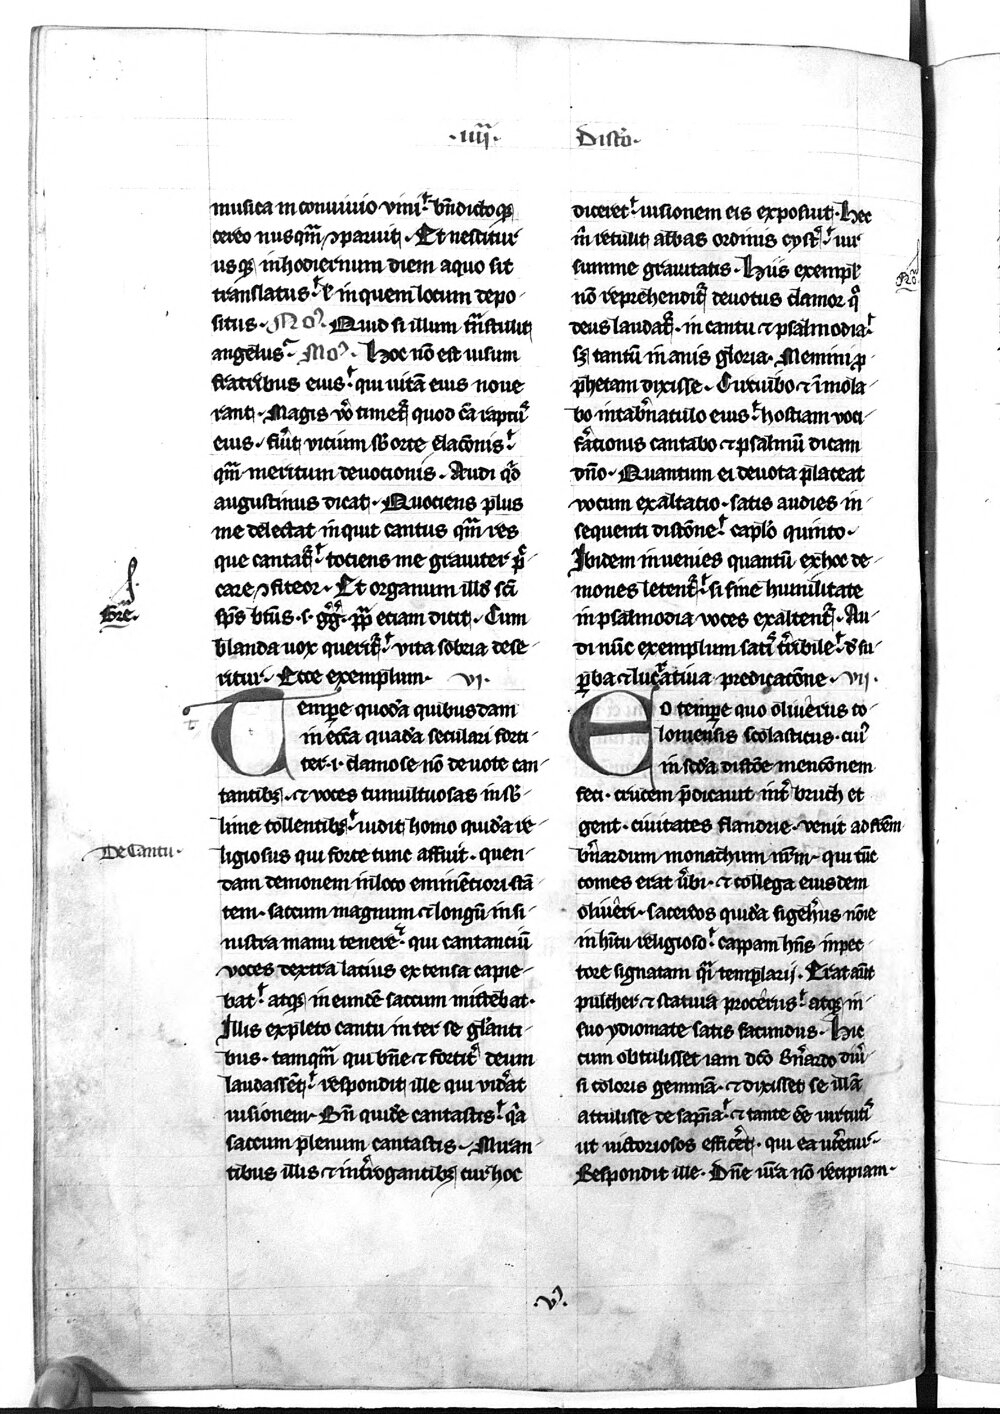 ·iiij· Disto·
musica in conviuio vini· bn̄dictoqꝫ
cereo nusqm̄ ꝯparuit· Et nescitur
usqꝫ in hodiernum diem a quo sit
translatus· ł in quem locum depo
situs· No⁹· Quid si illum tn̄stulit
angelus· Mo⁹· Hoc nō est uisum
fratribus eius· qui uitā eius noue
rant· Magis v̊o timet᷑ quod cā raptꝰ
eius· fu͛it vicium sb̄orte elacōnis·
qm̄ meritum deuocionis· Audi qͥd
augustinus dicat· Quociens plus
me delectat inquit cantus qm̄ res
que cantat᷑· tociens me grauiter pͨ
care ꝯfiteor· Et organum illd̄ sc̄i
sp̄s bt̄us· s· gͥgͥ· pp̄ eciam dicit· Cum
blanda uox querit᷑· vita sobria dese
ritur· Ecce exemplum· vi·
Tempe quodā quibusdam
in ecc̄a quadā seculari forti
ter· i· clamose nō deuote can
tantibꝫ· ⁊ uoces tumultuosas in sb̄
lime tollentibꝫ· uidit homo quidā re
ligiosus qui forte tunc affuit· quen
dam demonem in loco eminenciori stā
tem· saccum magnum ⁊ longū in si
nistra manu tenere· qui cantanciū
voces dextra latius extensa capie
bat· atqꝫ in eundē saccum mittebat·
Illis expleto cantu inter se gl̄anti
bus· tamqm̄ qui bn̄e ⁊ fortit͛ deum
laudassēt· respondit ille qui vid͛at
uisionem· Bn̄ quidē cantastis· qͥa
saccum plenum cantastis· Miran
tibus illis ⁊ int͛rogantibꝫ cur hoc
diceret· uisionem eis exposuit· Hec
m̄ retulit abbas ordinis cyst͛· uir
summe grauitatis· Hiis exempl̄
nō reprehendit᷑ deuotus clamor qͦ
deus laudat᷑· in cantu ⁊ psalmodia·
sꝫ tantū inanis gloria· Memini p̲
phetam dixisse· Circuibo ⁊ īmola
bo in tab͛naculo eius· hostiam voci
f͛ationis cantabo ⁊ psalmū dicam
dn̄o· Quantum ei deuota placeat
vocum exaltatio· satis audies in
sequenti distōne· caplo quinto·
Ibidem inuenies quantū ex hoc de
mones letent᷑· si sine humilitate
in psalmodia voces exaltent᷑· Au
di nūc exemplum satꝭ t͛ribile· d̄ su
p̲ba ⁊ lucͣatiua predicatōne· vii·
Eo tempe quo oliu͛erus co
loniensis scolasticus· cuiꝰ
in sc̄da distōe mencōnem
feci· crucem p̄dicauit int͛ bruch et
gent· ciuitates flandrie· venit ad fr̄em
bn̄ardum monachum nr̄m· qui tūc
comes erat v͛bi· ⁊ collega eiusdem
oliu͛eri· sacerdos quidā sigeh͛us nōie
in hītu religioso· cappam hn̄s in pec
tore signatam qͣi templarii· Erat aūt
pulcher ⁊ statura procerus· atqꝫ in
suo ydiomate satis facundus· Hic
cum obtulisset iam dc̄o Bn̄ardo diu͛
si coloris gemmā· ⁊ dixisset se illā
attulisse de sap̲ia· ⁊ tante ēē uirtutꝭ
ut uictoriosos effic͛et· qui ea ut͛etur·
Respondit ille· Dn̄e ur̄a nō recipiam·
De Cantu·
·v·